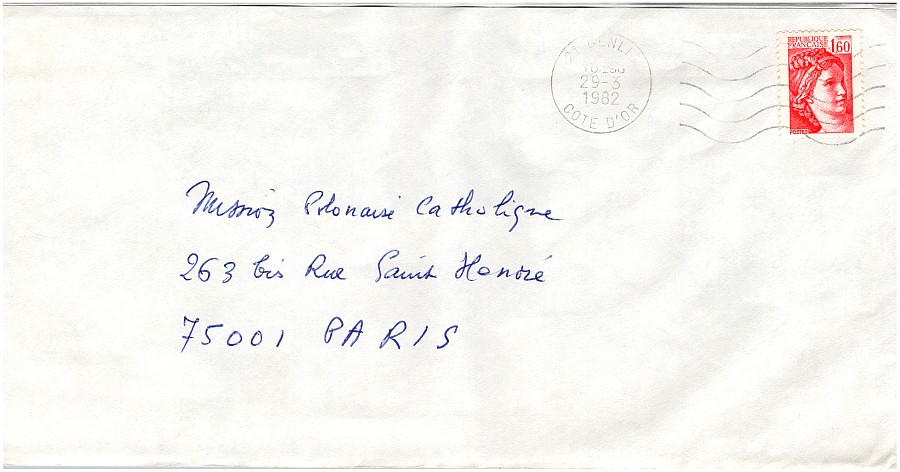 21 GENLI
29-3
1982
COTE D'OR
REPUBLIQUE
FRANCAISE 1,60
POSTES
Mission Polonaise Catholique
263 bis Rue Saint Honoré
75001 PARIS